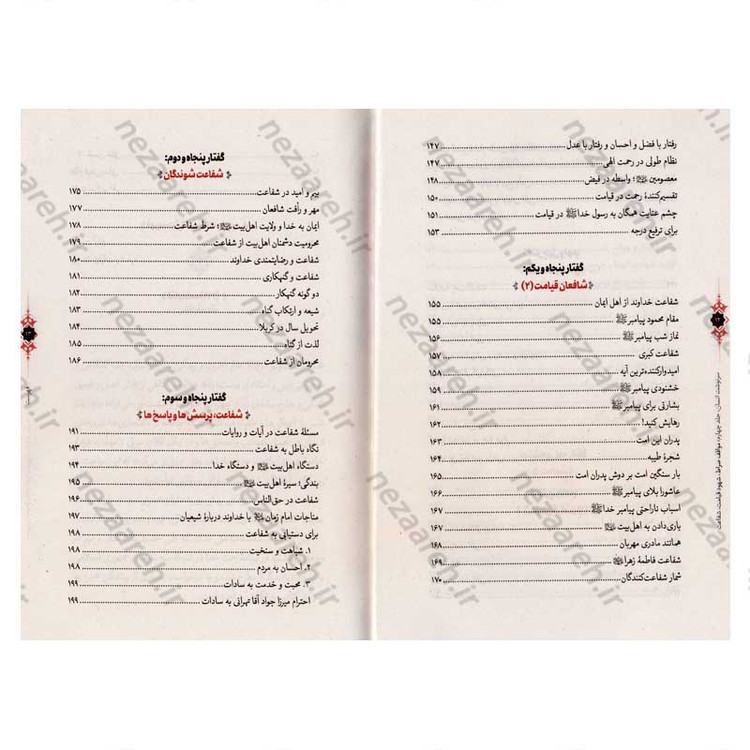 رفتار با فضل و احسان و رفتار با عدل ۱۴۷
نظام طولی در رحمت الهی ۱۴۷
معصومین ﷺ؛ واسطه در فیض ۱۴۸
تقسیم‌کنندهٔ رحمت در قیامت ۱۵۰
چشم عنایت همگان به رسول خدا ﷺ در قیامت ۱۵۱
برای ترفیع درجه ۱۵۳
گفتار پنجاه و یکم:
شافعان قیامت (۲)
شفاعت خداوند از اهل ایمان ۱۵۵
مقام محمود پیامبر ﷺ ۱۵۵
نماز شب پیامبر ﷺ ۱۵۶
شفاعت کبری ۱۵۷
امیدوارکننده‌ترین آیه ۱۵۸
خشنودی پیامبر ﷺ ۱۵۹
بشارتی برای پیامبر ﷺ ۱۶۱
رهایش کنید! ۱۶۲
پدران این امت ۱۶۳
شجرهٔ طیبه ۱۶۴
بار سنگین امت بر دوش پدران امت ۱۶۵
عاشورا بلای پیامبر ﷺ ۱۶۶
اسباب ناراحتی پیامبر خدا ﷺ ۱۶۷
یاری‌دادن به اهل‌بیت ۱۶۷
همانند مادری مهربان ۱۶۸
شفاعت فاطمهٔ زهرا ۱۶۹
شمار شفاعت‌کنندگان ۱۷۰
سرنوشت انسان، جلد چهارم: مواقف صراط، شهود قیامت، شفاعت
گفتار پنجاه و دوم:
شفاعت شوندگان
بیم و امید در شفاعت ۱۷۵
مهر و رأفت شافعان ۱۷۷
ایمان به خدا و ولایت اهل‌بیت؛ شرط شفاعت ۱۷۸
محرومیت دشمنان اهل‌بیت از شفاعت ۱۷۹
شفاعت و رضایتمندی خداوند ۱۸۰
شفاعت و گنهکاری ۱۸۱
دو گونه گنهکار ۱۸۲
شیعه و ارتکاب گناه ۱۸۳
تحویل سال در کربلا ۱۸۴
لذت از گناه ۱۸۵
محرومان از شفاعت ۱۸۶
گفتار پنجاه و سوم:
شفاعت، پرسش‌ها و پاسخ‌ها
مسئلهٔ شفاعت در آیات و روایات ۱۹۱
نگاه باطل به شفاعت ۱۹۳
دستگاه اهل‌بیت و دستگاه خدا ۱۹۴
بندگی؛ سیرهٔ اهل‌بیت ۱۹۵
شفاعت در حق‌الناس ۱۹۶
مناجات امام زمان با خداوند دربارهٔ شیعیان ۱۹۷
برای دستیابی به شفاعت ۱۹۸
۱. شباهت و سنخیت ۱۹۸
۲. احسان به مردم ۱۹۸
۳. محبت و خدمت به سادات ۱۹۹
احترام میرزا جواد آقا تهرانی به سادات ۱۹۹
nezaareh.ir
nezaareh.ir
nezaareh.ir
nezaareh.ir
nezaareh.ir
nezaareh.ir
nezaareh.ir
nezaareh.ir
nezaareh.ir